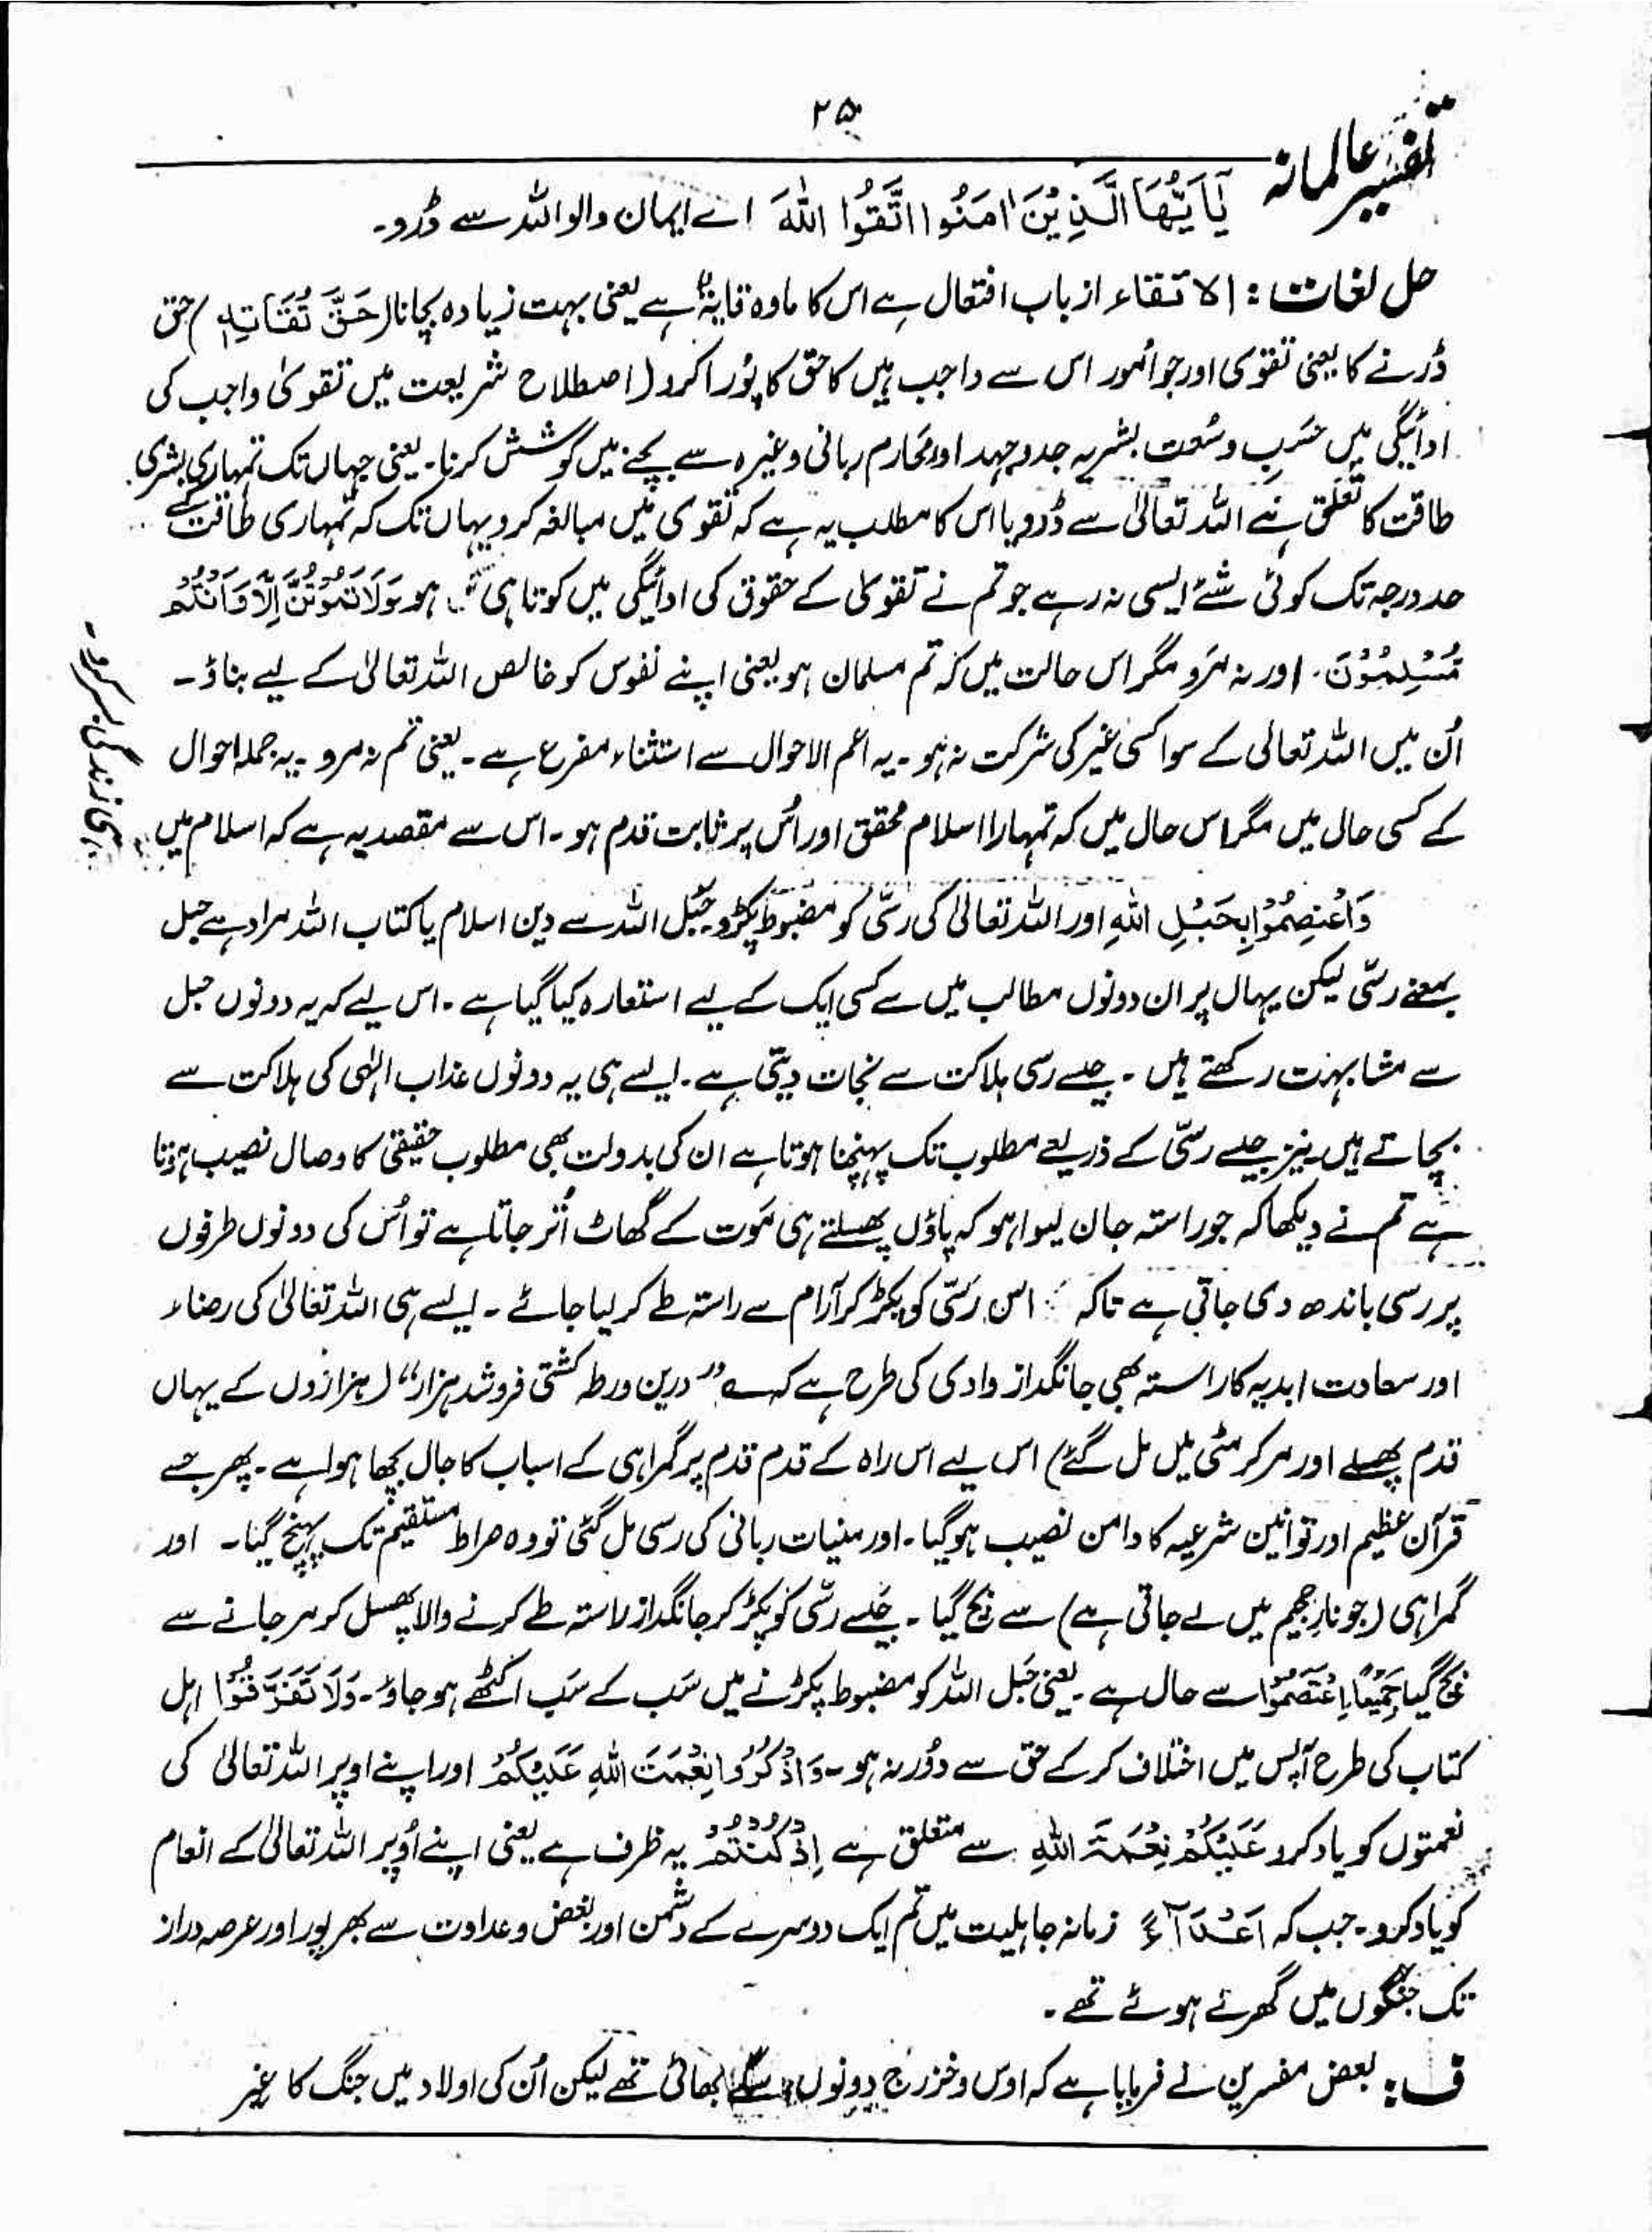 ۲۵
تفسیر عالمانہ
یٰٓاَیُّهَا الَّذِیْنَ اٰمَنُوا اتَّقُوا اللّٰهَ اے ایمان والو اللہ سے ڈرو۔
حل لغات : الاتقاء از باب افتعال ہے اس کا مادہ وقایۃ ہے یعنی بہت زیادہ بچانا (حَقَّ تُقَاتِهٖ) حق
ڈرنے کا یعنی تقوی اور جو اُمور اس سے واجب ہیں کا حق کا پُورا کرو (اصطلاح شریعت میں تقویٰ واجب کی
ادائیگی میں حسَبِ وسُعت بشریہ جدوجہد اور محَارم ربانی وغیرہ سے بچنے میں کوشش کرنا۔ یعنی جہاں تک تمہاری بشری
طاقت کا تعَلق ہے اللہ تعالیٰ سے ڈرو یا اس کا مطلب یہ ہے کہ تقوی میں مبالغہ کرو یہاں تک کہ تمہاری طاقت کے
حد درجہ تک کوئی شئے ایسی نہ رہے جو تم نے تقویٰ کے حقوق کی ادائیگی میں کوتاہی ہو وَلَا تَمُوْتُنَّ اِلَّا وَاَنْتُمْ
مُّسْلِمُوْنَ۔ اور نہ مَرو مگر اس حالت میں کہ تم مسلمان ہو یعنی اپنے نفوس کو خالص اللہ تعالیٰ کے لیے بناؤ۔
اُن میں اللہ تعالی کے سوا کسی غیر کی شرکت نہ ہو۔ یہ اعم الاحوال سے استثناء مفرغ ہے۔ یعنی تم نہ مرو۔ یہ جملہ احوال
کے کسی حال میں مگر اس حال میں کہ تمہارا اسلام محقق اور اُس پر ثابت قدم ہو۔ اس سے مقصد یہ ہے کہ اسلام میں
ہی زندگی بسر کرو۔
وَاعْتَصِمُوْا بِحَبْلِ اللّٰهِ اور اللہ تعالیٰ کی رسّی کو مضبوط پکڑو حبْل اللہ سے دین اسلام یا کتاب اللہ مراد ہے حبل
بمعنے رسّی لیکن یہاں پر ان دونوں مطالب میں سے کسی ایک کے لیے استعارہ کیا گیا ہے۔ اس لیے کہ یہ دونوں حبل
سے مشابہت رکھتے ہیں۔ جیسے رسی ہلاکت سے نجات دیتی ہے۔ ایسے ہی یہ دونوں عذاب الٰہی کی ہلاکت سے
بچاتے ہیں۔ نیز جیسے رسّی کے ذریعے مطلوب تک پہنچنا ہوتا ہے ان کی بدولت بھی مطلوب حقیقی کا وصال نصیب ہوتا
ہے تم نے دیکھا کہ جو راستہ جان لیوا ہو کہ پاؤں پھسلتے ہی مَوت کے گھاٹ اُتر جاتا ہے تو اُس کی دونوں طرفوں
پر رسی باندھ دی جاتی ہے تاکہ اس رسّی کو پکڑ کر آرام سے راستہ طے کر لیا جائے۔ ایسے ہی اللہ تعالیٰ کی رضاء
اور سعادت ابدیہ کا راستہ بھی جانگداز وادی کی طرح ہے کہ ”درین ورطہ کشتی فروشد ہزار“ (ہزاروں کے یہاں
قدم پھسلے اور مر کر مٹی میں مل گئے) اس لیے اس راہ کے قدم قدم پر گمراہی کے اسباب کا جال بچھا ہوا ہے۔ پھر جسے
قرآن عظیم اور قوانین شرعیہ کا دامن نصیب ہو گیا۔ اور ربانی کی رسی مل گئی تو وہ صراط مستقیم تک پہنچ گیا۔ اور
گمراہی (جو نارِ جحیم میں لے جاتی ہے) سے بچ گیا۔ جیسے رسّی کو پکڑ کر جانگداز راستہ طے کرنے والا پھسل کر مر جانے سے
بچ گیا جَمِیْعًا اِعْتَصِمُوْا سے حال ہے۔ یعنی حَبل اللہ کو مضبوط پکڑنے میں سَب کے سَب اکٹھے ہو جاؤ۔ وَلَا تَفَرَّقُوْا اہل
کتاب کی طرح آپس میں اختلاف کر کے حق سے دوُر نہ ہو۔ وَاذْکُرُوْا نِعْمَتَ اللّٰهِ عَلَیْکُمْ اور اپنے اوپر اللہ تعالیٰ کی
نعمتوں کو یاد کرو عَلَیْکُمْ نِعْمَۃَ اللّٰهِ سے متعلق ہے اِذْ کُنْتُمْ یہ ظرف ہے یعنی اپنے اُوپر اللہ تعالیٰ کے انعام
کو یاد کرو۔ جب کہ اَعْدَآءً زمانہ جاہلیت میں تم ایک دوسرے کے دشمن اور بغض وعداوت سے بھرپور اور عرصہ دراز
تک جنگوں میں گھرے ہوئے تھے۔
ف : بعض مفسرین نے فرمایا ہے کہ اوس وخزرج دونوں سگے بھائی تھے لیکن اُن کی اولاد میں جنگ کا غیر